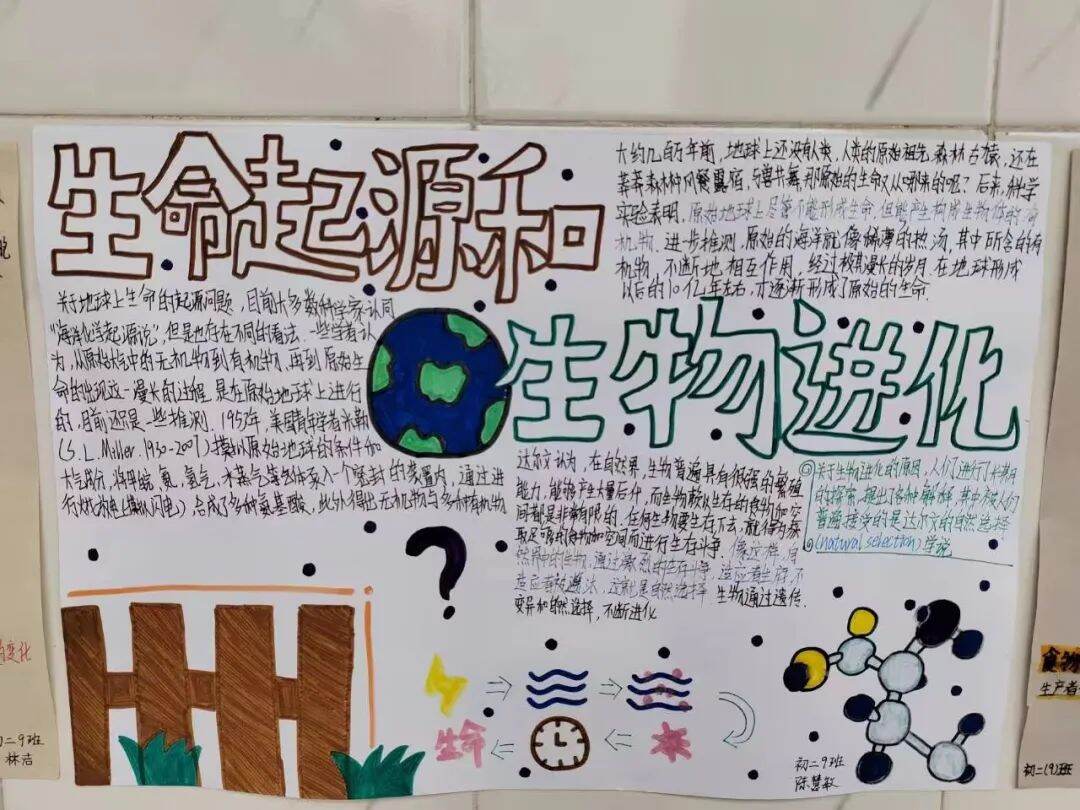 生命起源和
大约几百万年前,地球上还没有人类,人类的原始祖先森林古猿,还在
莽莽森林树风餐露宿,与兽共舞,那原始的生命又从哪来的呢?后来,科学
实验表明,原始地球上尽管不能形成生命,但能产生构成生物体的有
机物,进一步推测,原始的海洋就像稀薄的热汤,其中所含的有
机物,不断地相互作用,经过极其漫长的岁月,在地球形成
以后的10亿年左右,才逐渐形成了原始的生命.
关于地球上生命的起源问题,目前大多数科学家认同
“海洋化学起源说”,但是也存在不同的看法.一些学者认
为,从原始大气中的无机物到有机物,再到原始生
命的出现这一漫长的过程,是在原始地球上进行
的,目前还只是一些推测.1953年,美国青年学者米勒
(S.L.Miller.1930-2007)模拟原始地球的条件和
大气成分,将甲烷、氨、氢气、水蒸气等气体泵入一个密封的装置内,通过进
行火花放电(模拟闪电),合成了多种氨基酸,此外得出无机物与多种有机物
生物进化
达尔文认为,在自然界,生物普遍具有很强的繁殖
能力,能够产生大量后代,而生物赖以生存的食物和空
间都是非常有限的,任何生物要生存下去,就得为获
取足够的食物和空间而进行生存斗争.
自然界中的生物,通过激烈的生存斗争,适应者生存,不
适应者被淘汰,这就是自然选择.生物通过遗传.
变异和自然选择,不断进化
关于生物进化的原因,人们进行了长期
的探索,提出了多种解释,其中被人们
普遍接受的是达尔文的自然选择
(natural selection)学说
生命
初二9班
陈慧敏
变化
初二9班
林洁
食物
生产者
初二(9)班